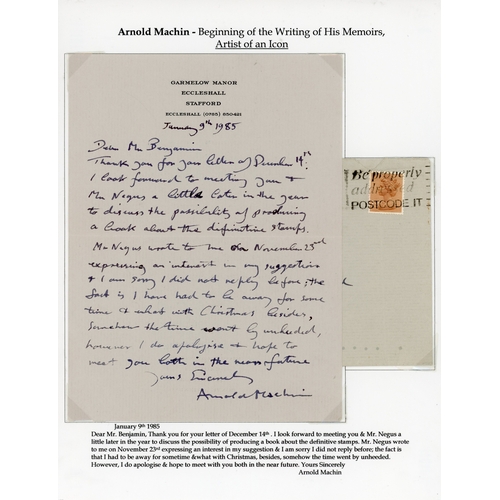 Arnold Machin - Beginning of the Writing of His Memoirs,
Artist of an Icon
GARMELOW MANOR
ECCLESHALL
STAFFORD
ECCLESHALL (0785) 850421
January 9th 1985
Dear Mr Benjamin
Thank you for your letter of December 14th.
I look forward to meeting you &
Mr Negus a little later in the year
to discuss the possibility of producing
a book about the difinitive stamps.
Mr Negus wrote to me on November 23rd
expressing an interest in my suggestion
& I am sorry I did not reply before; the
fact is I have had to be away for some
time & what with Christmas besides,
somehow the time went by unheeded,
however I do apologise & hope to
meet you both in the near future
Yours Sincerely
Arnold Machin
Be properly
addressed
POSTCODE IT
January 9th 1985
Dear Mr. Benjamin, Thank you for your letter of December 14th . I look forward to meeting you & Mr. Negus a
little later in the year to discuss the possibility of producing a book about the definitive stamps. Mr. Negus wrote
to me on November 23rd expressing an interest in my suggestion & I am sorry I did not reply before; the fact is
that I had to be away for sometime &what with Christmas, besides, somehow the time went by unheeded.
However, I do apologise & hope to meet with you both in the near future. Yours Sincerely
Arnold Machin